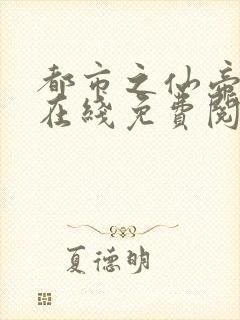 都市之仙帝
在线免費閱
夏德明